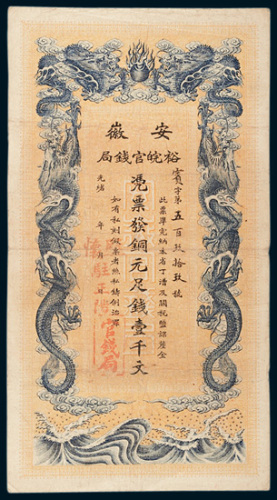 安徽
裕皖官錢局
寳字第五百玖拾玖號
此票準完納本省丁漕及關稅鹽課釐金
憑票發銅元足錢壹千文
如有私刻假票者照私鑄例治罪
光緒 年 月 日
懷
駐
階
官錢局